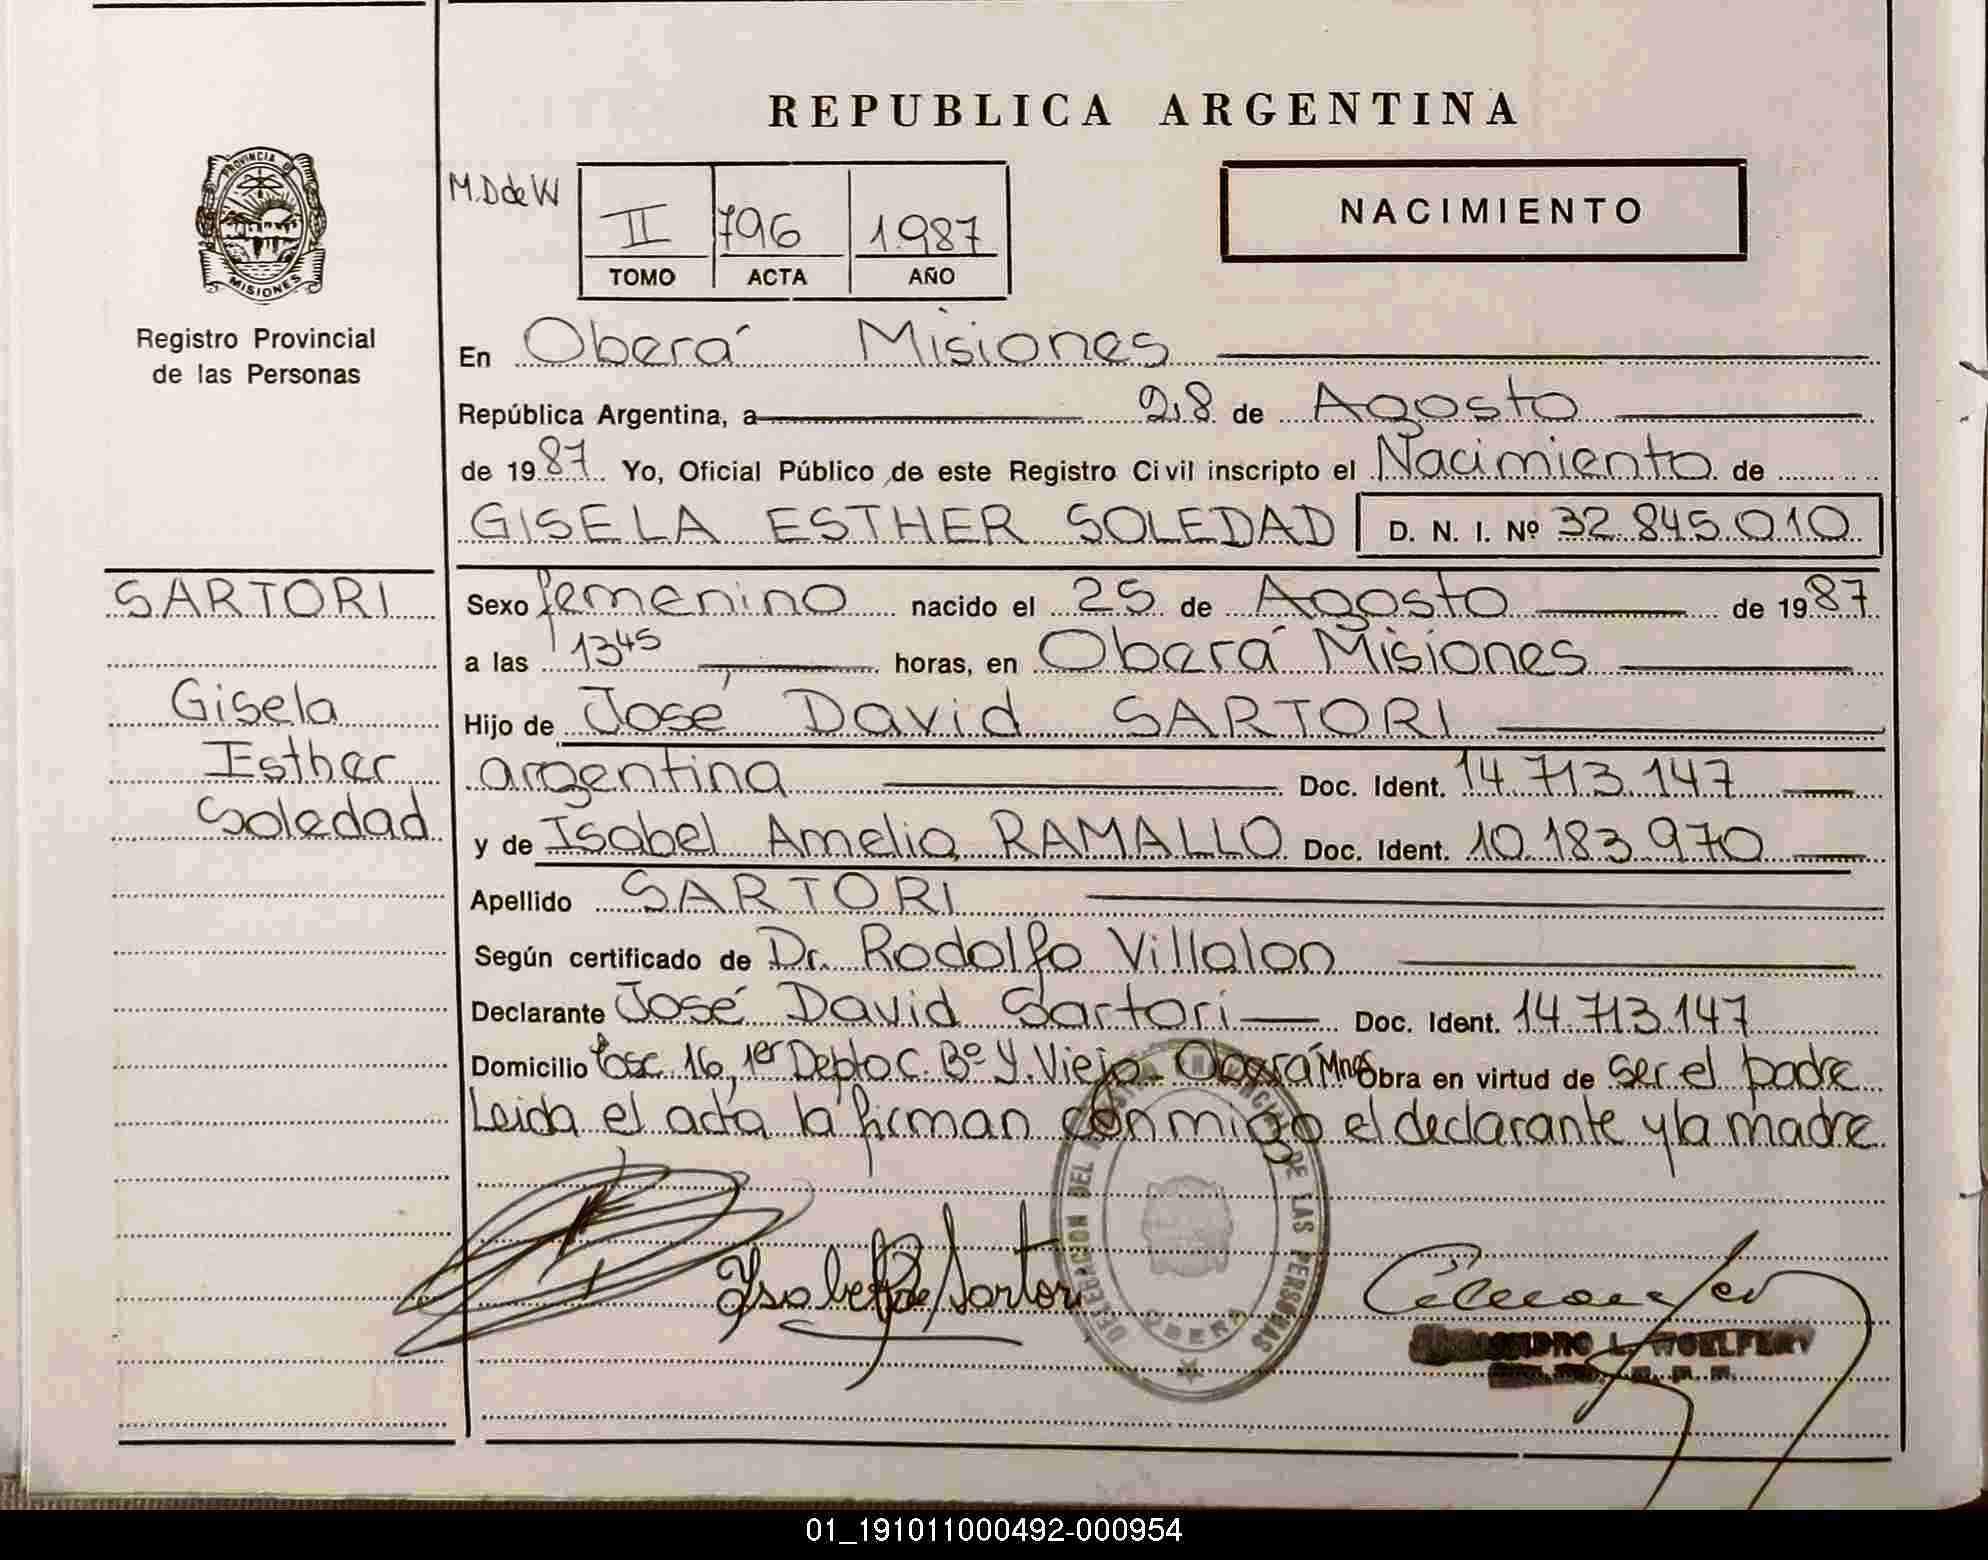 REPUBLICA ARGENTINA
PROVINCIA DE
MISIONES
Registro Provincial
de las Personas
M.D de W
II 796 1.987
TOMO ACTA AÑO
NACIMIENTO
En Oberá Misiones
República Argentina, a 28 de Agosto
de 1987 Yo, Oficial Público de este Registro Civil inscripto el Nacimiento de
GISELA ESTHER SOLEDAD D. N. I. Nº 32.845.010
SARTORI
Gisela
Esther
Soledad
Sexo femenino nacido el 25 de Agosto de 1987
a las 13 45 horas, en Oberá Misiones
Hijo de José David SARTORI
argentina Doc. Ident. 14.713.147
y de Isabel Amelia RAMALLO Doc. Ident. 10.183.970
Apellido SARTORI
Según certificado de Dr. Rodolfo Villalon
Declarante José David Sartori Doc. Ident. 14.713.147
Domicilio Esc. 16, 1er Depto C. Bº Y. Viejo Oberá Mnes Obra en virtud de ser el padre
Leida el acta la firman conmigo el declarante y la madre
Ysabel R de Sartori
DELEGACION DEL DE LAS PERSONAS
OBERA
L. WOELFERT
01_191011000492-000954